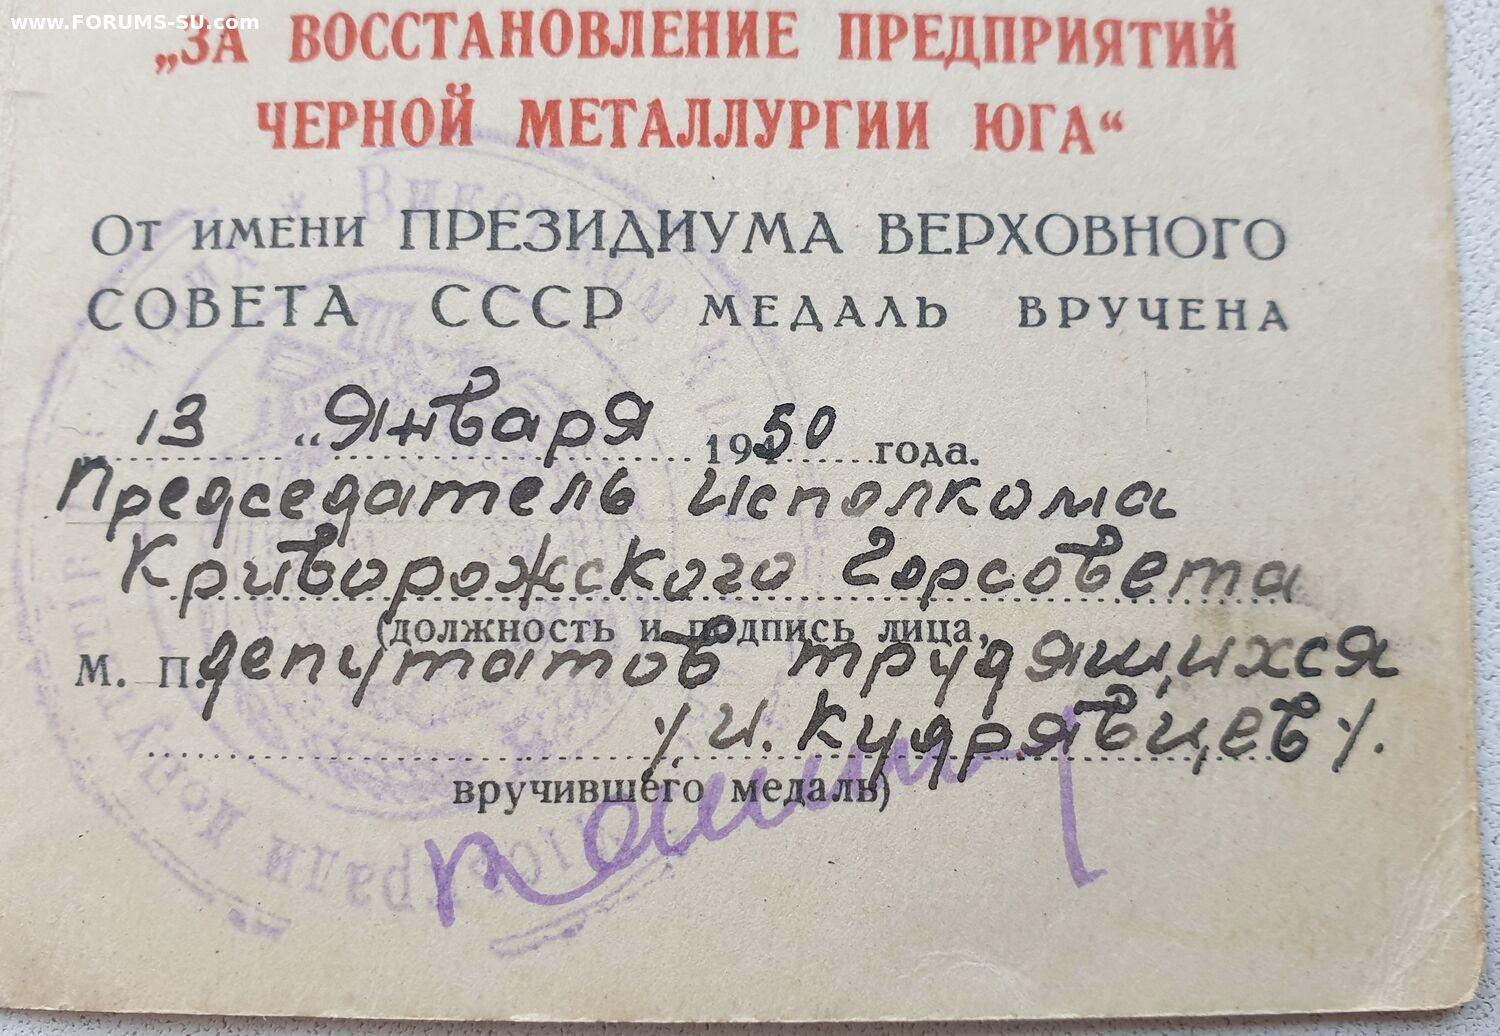 www.FORUMS-SU.com
„ЗА ВОССТАНОВЛЕНИЕ ПРЕДПРИЯТИЙ
ЧЕРНОЙ МЕТАЛЛУРГИИ ЮГА“
От имени ПРЕЗИДИУМА ВЕРХОВНОГО
СОВЕТА СССР МЕДАЛЬ ВРУЧЕНА
13 „Января 1950 года.
Председатель Исполкома
Криворожского Горсовета
(должность и подпись лица,
М. П. депутатов трудящихся
/И. Кудрявцев/.
вручившего медаль)